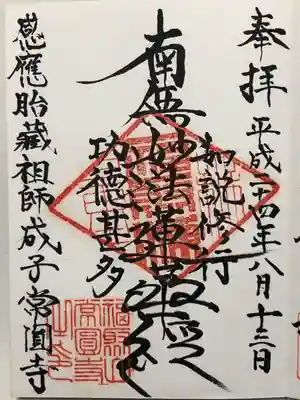 奉拝 平成二十四年八月十三日
如説修行
南無妙法蓮華経
功徳甚多
感應胎藏祖師成子常圓寺